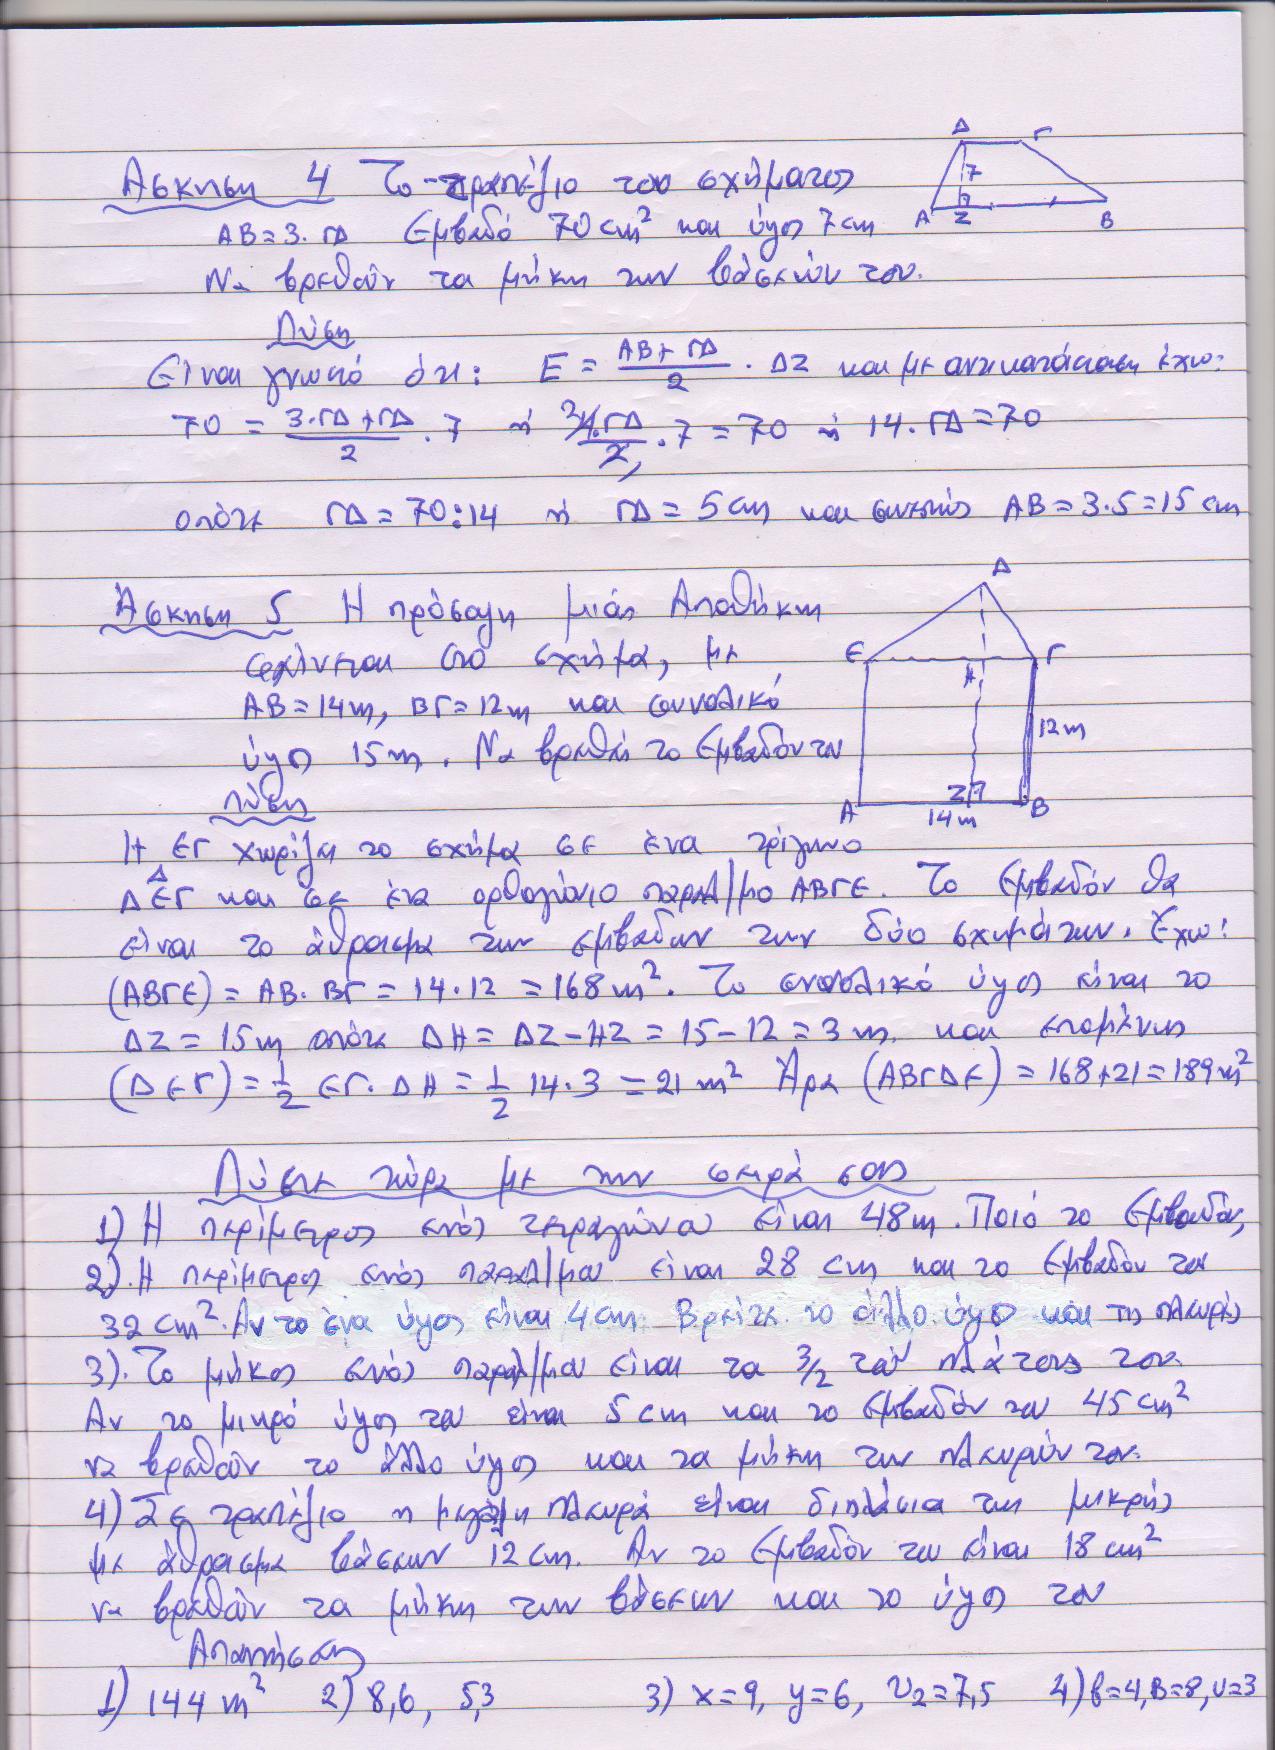 Δ Γ
Άσκηση 4 Το τραπέζιο του σχήματος
7
Α Ζ Β
ΑΒ=3·ΓΔ Εμβαδό 70 cm² και ύψος 7 cm
Να βρεθούν τα μήκη των βάσεών του.
Λύση
Είναι γνωστό ότι: Ε = (ΑΒ+ΓΔ)/2 · ΔΖ και με αντικατάσταση έχω:
70 = (3·ΓΔ+ΓΔ)/2 · 7 ή (4·ΓΔ)/2 · 7 = 70 ή 14·ΓΔ=70
οπότε ΓΔ = 70:14 ή ΓΔ = 5 cm και συνεπώς ΑΒ = 3·5 = 15 cm
Δ
Άσκηση 5 Η πρόσοψη μιάς Αποθήκης
Ε Γ
φαίνεται στο σχήμα, με
Η
ΑΒ=14m, ΒΓ=12m και συνολικό
12 m
ύψος 15m. Να βρεθεί το Εμβαδόν της
Λύση
Α Ζ Β
14 m
Η ΕΓ χωρίζει το σχήμα σε ένα τρίγωνο
ΔΕΓ και σε ένα ορθογώνιο παραλ/μο ΑΒΓΕ. Το Εμβαδόν θα
είναι το άθροισμα των εμβαδών των δύο σχημάτων. Έχω:
(ΑΒΓΕ) = ΑΒ·ΒΓ = 14·12 = 168 m². Το συνολικό ύψος είναι το
ΔΖ = 15 m οπότε ΔΗ = ΔΖ-ΗΖ = 15-12 = 3 m. και επομένως
(ΔΕΓ) = 1/2 ΕΓ·ΔΗ = 1/2 14·3 = 21 m² Άρα (ΑΒΓΔΕ) = 168+21 = 189 m²
Λύστε τώρα με την σειρά σας
1) Η περίμετρος ενός τετραγώνου είναι 48m. Ποιό το Εμβαδόν;
2). Η περίμετρος ενός παραλ/μου είναι 28 cm και το Εμβαδόν του
32 cm². Αν το ένα ύψος είναι 4 cm Βρείτε το άλλο ύψος και τις πλευρές
3). Το μήκος ενός παραλ/μου είναι τα 3/2 του πλάτους του.
Αν το μικρό ύψος του είναι 5 cm και το Εμβαδόν του 45 cm²
να βρεθούν το άλλο ύψος και τα μήκη των πλευρών του.
4) Σε τραπέζιο η μεγάλη πλευρά είναι διπλάσια της μικρής
με άθροισμα βάσεων 12 cm. Αν το Εμβαδόν του είναι 18 cm²
να βρεθούν τα μήκη των βάσεων και το ύψος του
Απαντήσεις
1) 144 m² 2) 8,6, 5,3 3) x=9, y=6, υ₂=7,5 4) β=4, Β=8, υ=3